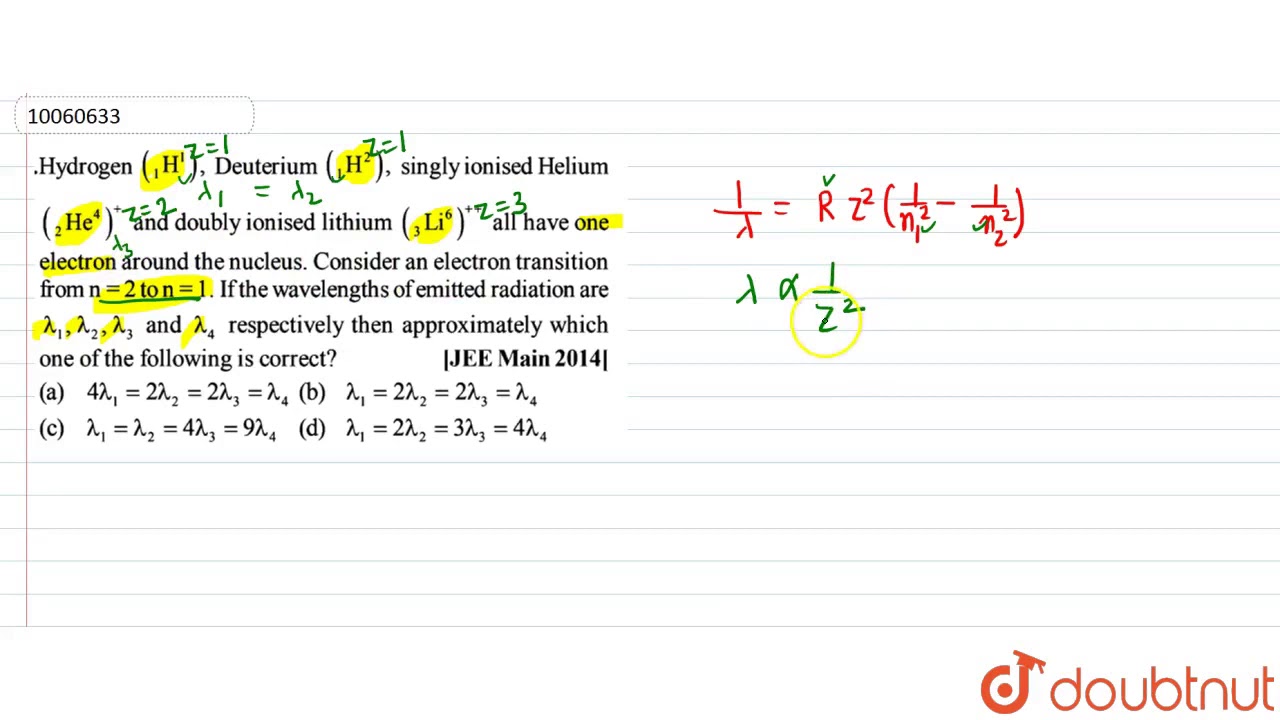 10060633
.Hydrogen (₁H¹), Deuterium (₁H²), singly ionised Helium
z=1 z=1
λ₁ = λ₂
(₂He⁴)⁺ and doubly ionised lithium (₃Li⁶)⁺⁺ all have one
z=2 z=3
λ₃
electron around the nucleus. Consider an electron transition
from n = 2 to n = 1. If the wavelengths of emitted radiation are
λ₁, λ₂, λ₃ and λ₄ respectively then approximately which
one of the following is correct? [JEE Main 2014]
(a) 4λ₁ = 2λ₂ = 2λ₃ = λ₄ (b) λ₁ = 2λ₂ = 2λ₃ = λ₄
(c) λ₁ = λ₂ = 4λ₃ = 9λ₄ (d) λ₁ = 2λ₂ = 3λ₃ = 4λ₄
1/λ = R Z² (1/n₁² − 1/n₂²)
λ ∝ 1/Z²
doubtnut